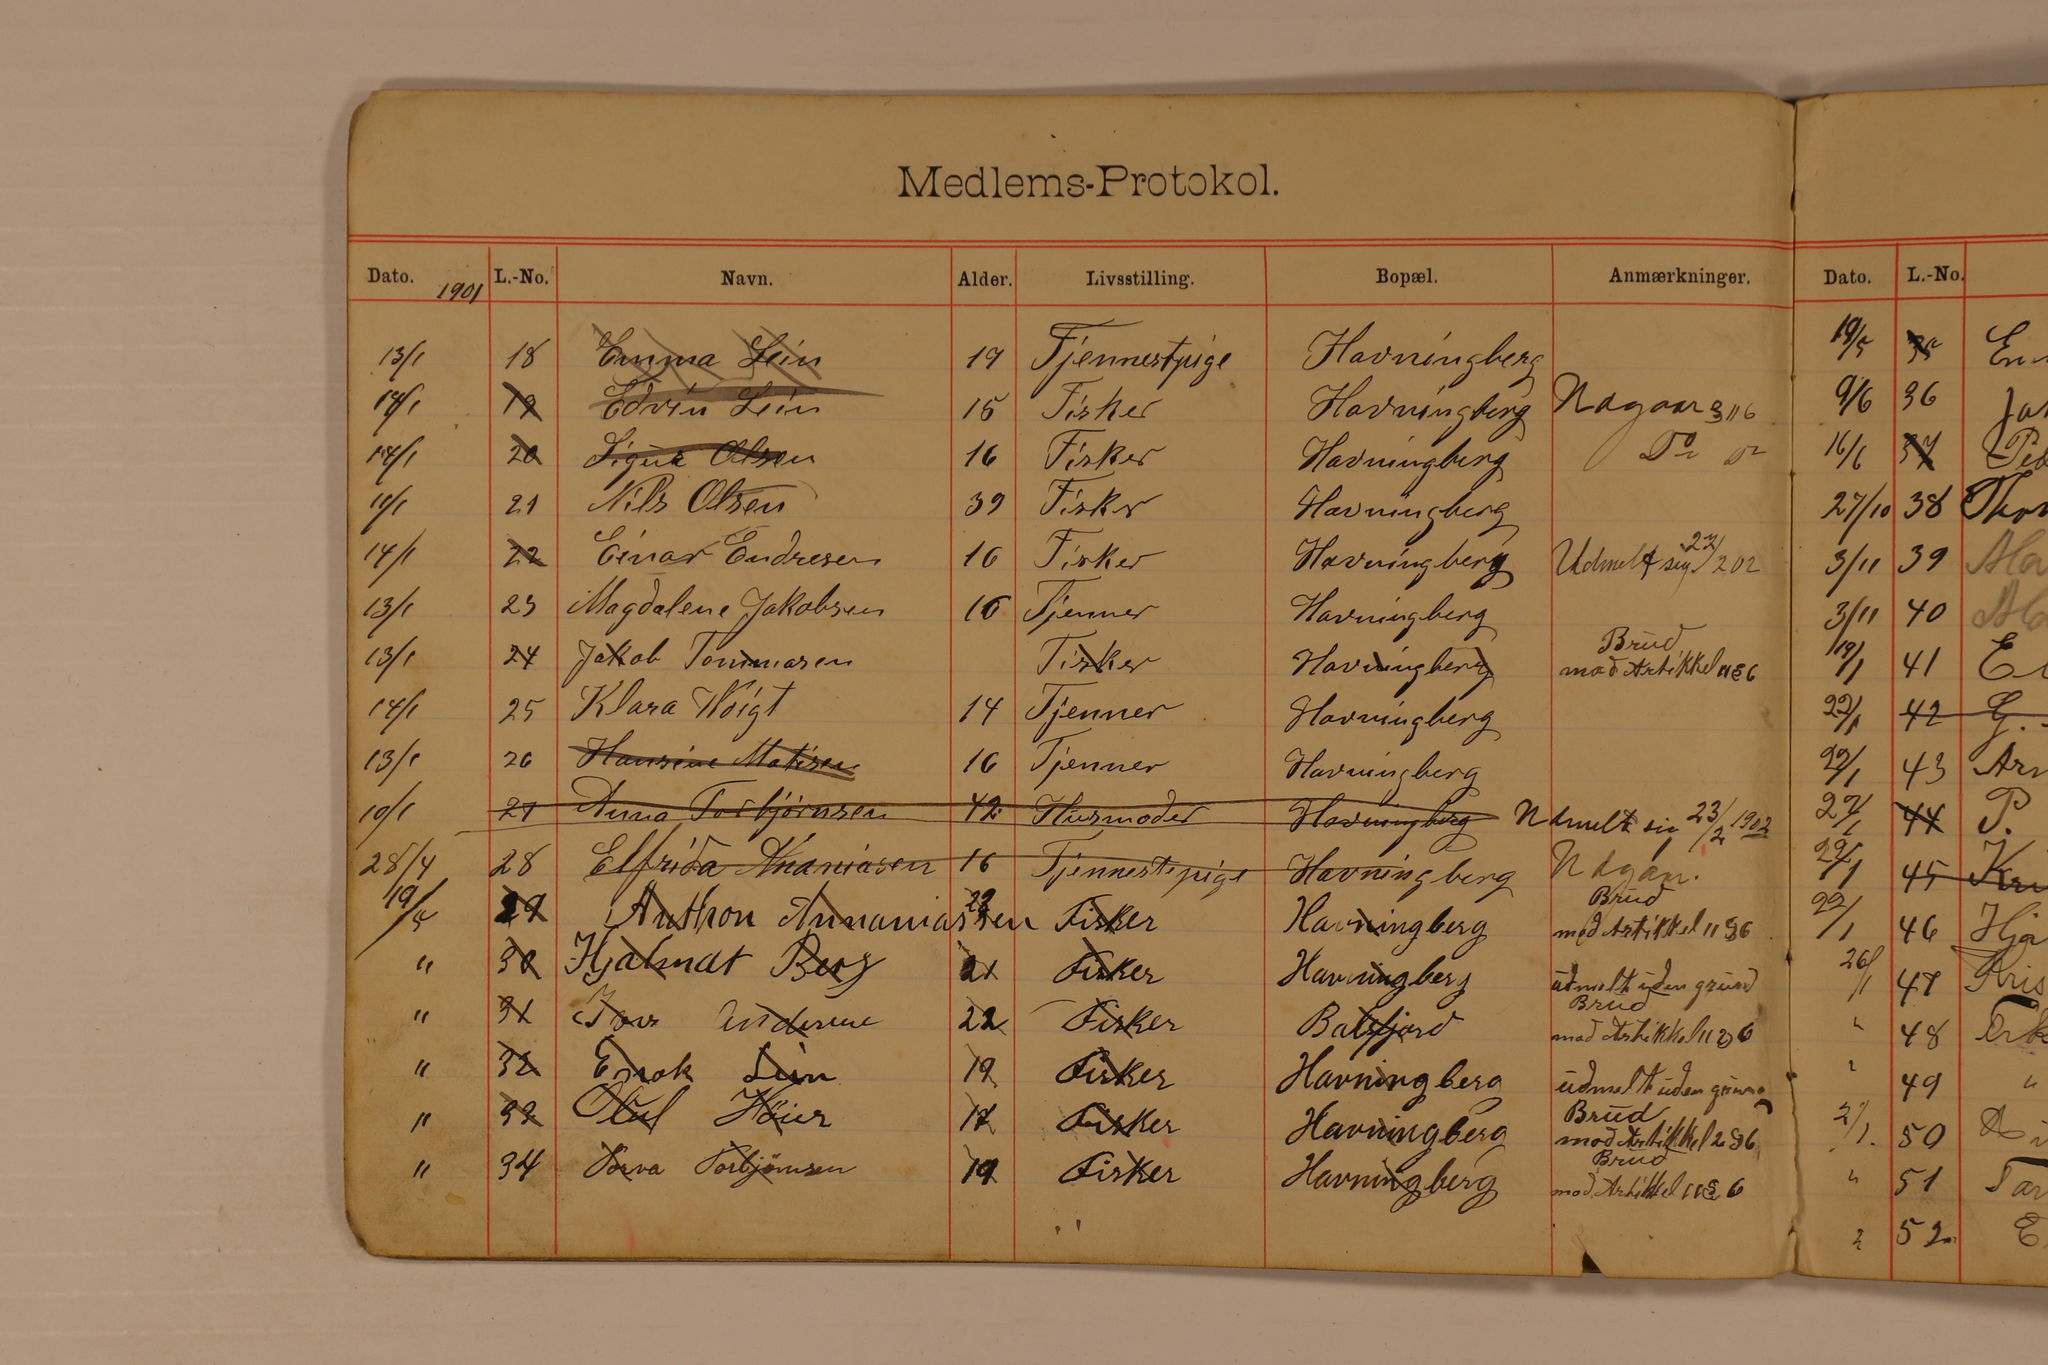 Medlems-Protokol.
Dato. 1901 L.-No. Navn. Alder. Livsstilling. Bopæl. Anmærkninger.
13/1 18 Emma Lein 19 Tjennestpige Havningberg
14/1 19 Edvin Lein 15 Fisker Havningberg Udgaar 3 11 6
14/1 20 Signe Olsen 16 Fisker Havningberg Do
10/1 21 Nils Olsen 39 Fisker Havningberg
14/1 22 Einar Endresen 16 Fisker Havningberg Udmelt sig 22/2 02
13/1 23 Magdalene Jakobsen 16 Tjenner Havningberg
13/1 24 Jakob Tommasen Fisker Havningberg Brud mod Artikkel 11 § 6
14/1 25 Klara Woigt 14 Tjenner Havningberg
13/1 26 Hansine Matisen 16 Tjenner Havningberg
10/1 27 Anna Torbjørnsen 42 Husmoder Havningberg Udmelt sig 23/2 1902
28/4 28 Elfrida Ananiasen 16 Tjennestepige Havningberg Udgaar.
19/5 29 Anthon Annaniassen 22 Fisker Havningberg Brud mod Artikkel 11 § 6
" 30 Hjalmat Berg 21 Fisker Havningberg udmelt uden grund
" 31 Andersen 22 Fisker Balsfjord Brud mod Artikkel 11 § 6
" 32 Enok Lein 19 Fisker Havningberg udmelt uden grund
" 33 Oluf Høier 17 Fisker Havningberg Brud mod Artikkel 2 § 6
" 34 Torbjørnsen 19 Fisker Havningberg Brud mod Artikkel 11 § 6
Dato. L.-No.
19/5 35 En
9/6 36 Ja
16/6 37 Ped
27/10 38 Thor
3/11 39
3/11 40
19/1 41 E
22/1 42 G.
22/1 43 Ar
22/1 44 P.
22/1 45 Kri
22/1 46 Hja
26/1 47 Kris
" 48
" 49 "
2/1. 50
" 51 Tar
" 52 E